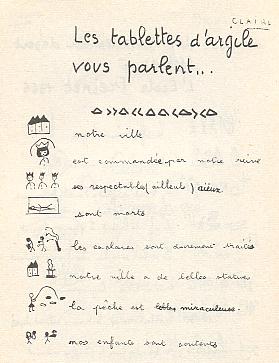 CLAIRE
Les tablettes d'argile
vous parlent...
notre ville
est commandée par notre reine
ses respectables (ailleuls) aïeux
sont morts
les esclaves sont durement traités
notre ville a de belles statues
la pêche est miraculeuse.
nos enfants sont contents